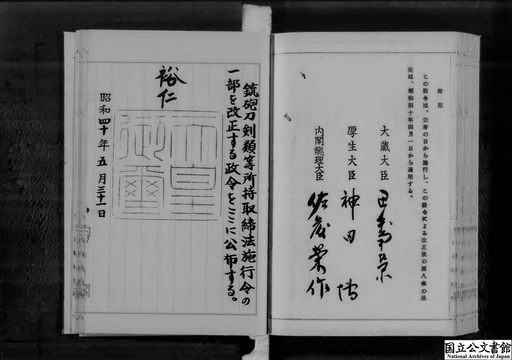 附則
この政令は、公布の日から施行し、この政令による改正後の第八条の規
定は、昭和四十年四月一日から適用する。
大蔵大臣
厚生大臣 神田博
内閣総理大臣 佐藤榮作
銃砲刀剣類等所持取締法施行令の
一部を改正する政令をここに公布する。
裕仁
天皇御璽
昭和四十年五月三十一日
国立公文書館
National Archives of Japan